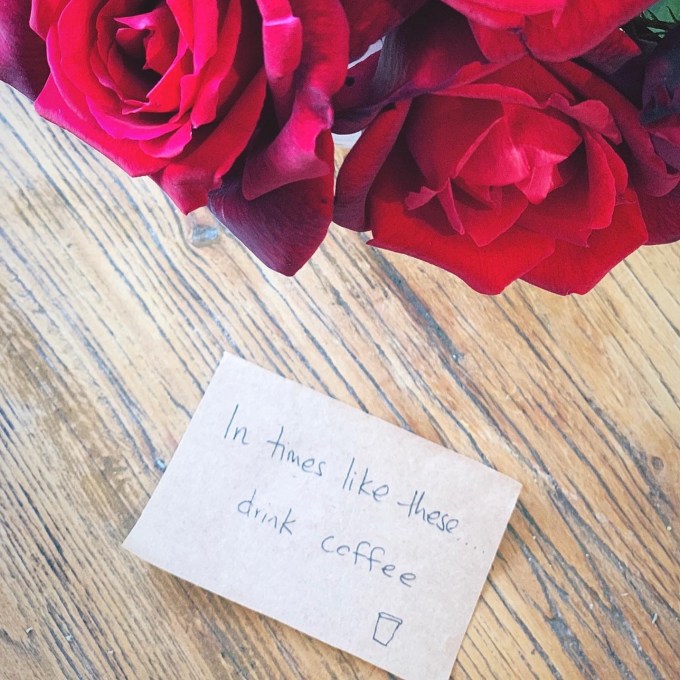 In times like these....
drink coffee